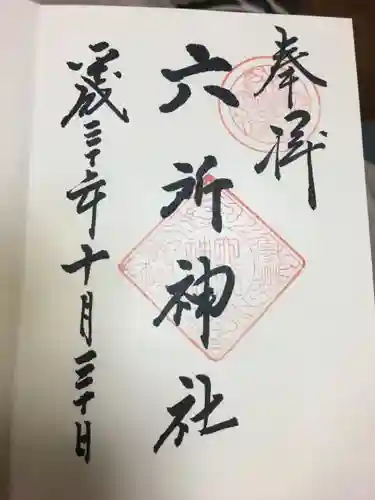 奉拝
六所神社
平成三十年十月三十日